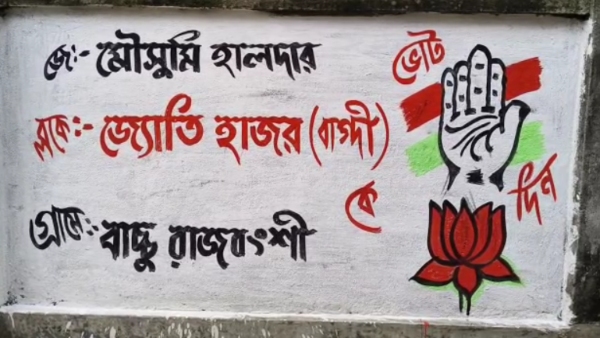 জেঃ- মৌসুমি হালদার
ব্লকেঃ- জ্যোতি হাজরা (বাগ্দী)
কে
গ্রামেঃ- বাচ্চু রাজবংশী
ভোট
দিন